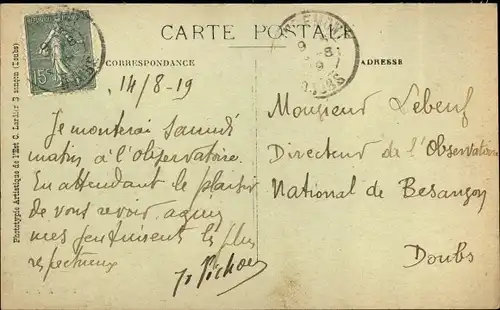 CARTE POSTALE
CORRESPONDANCE
ADRESSE
15c
14/8-19
Je monterai Samedi
matin à l'Observatoire.
En attendant le plaisir
de vous revoir, agréez
mes sentiments les plus
respectueux
Monsieur Lebeuf
Directeur de l'Observatoire
National de Besançon
Doubs
Phototypie Artistique de l'Est C. Lardier
(Doubs)